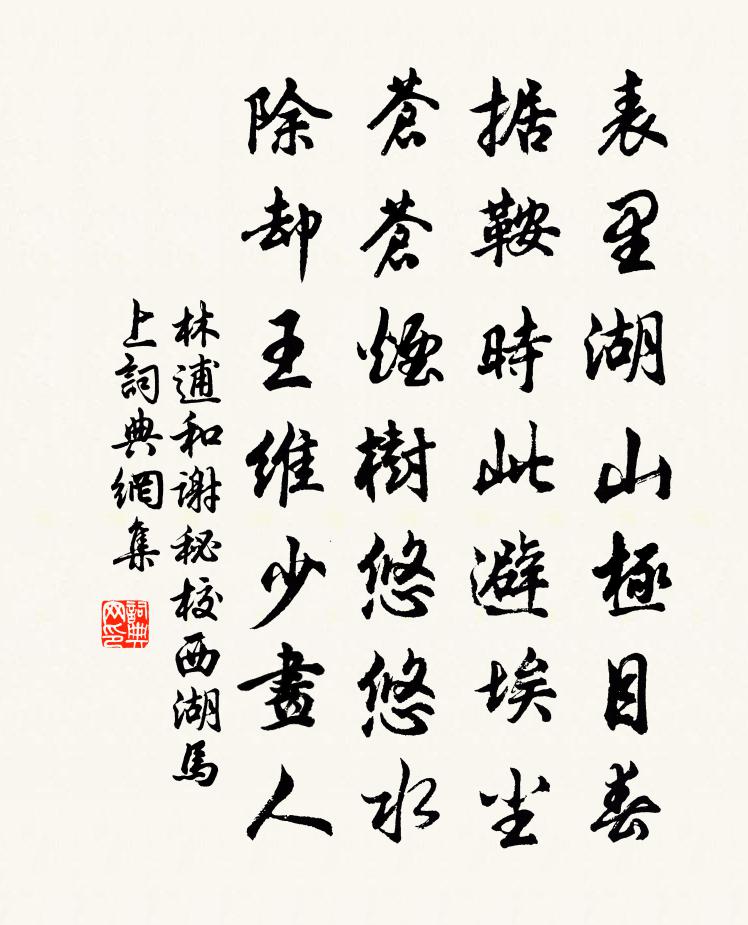 表里湖山極目春
据鞍時此避埃尘
蒼蒼煙樹悠悠水
除却王維少畫人
林逋和謝秘校西湖馬
上詞典網集
詞典
网印